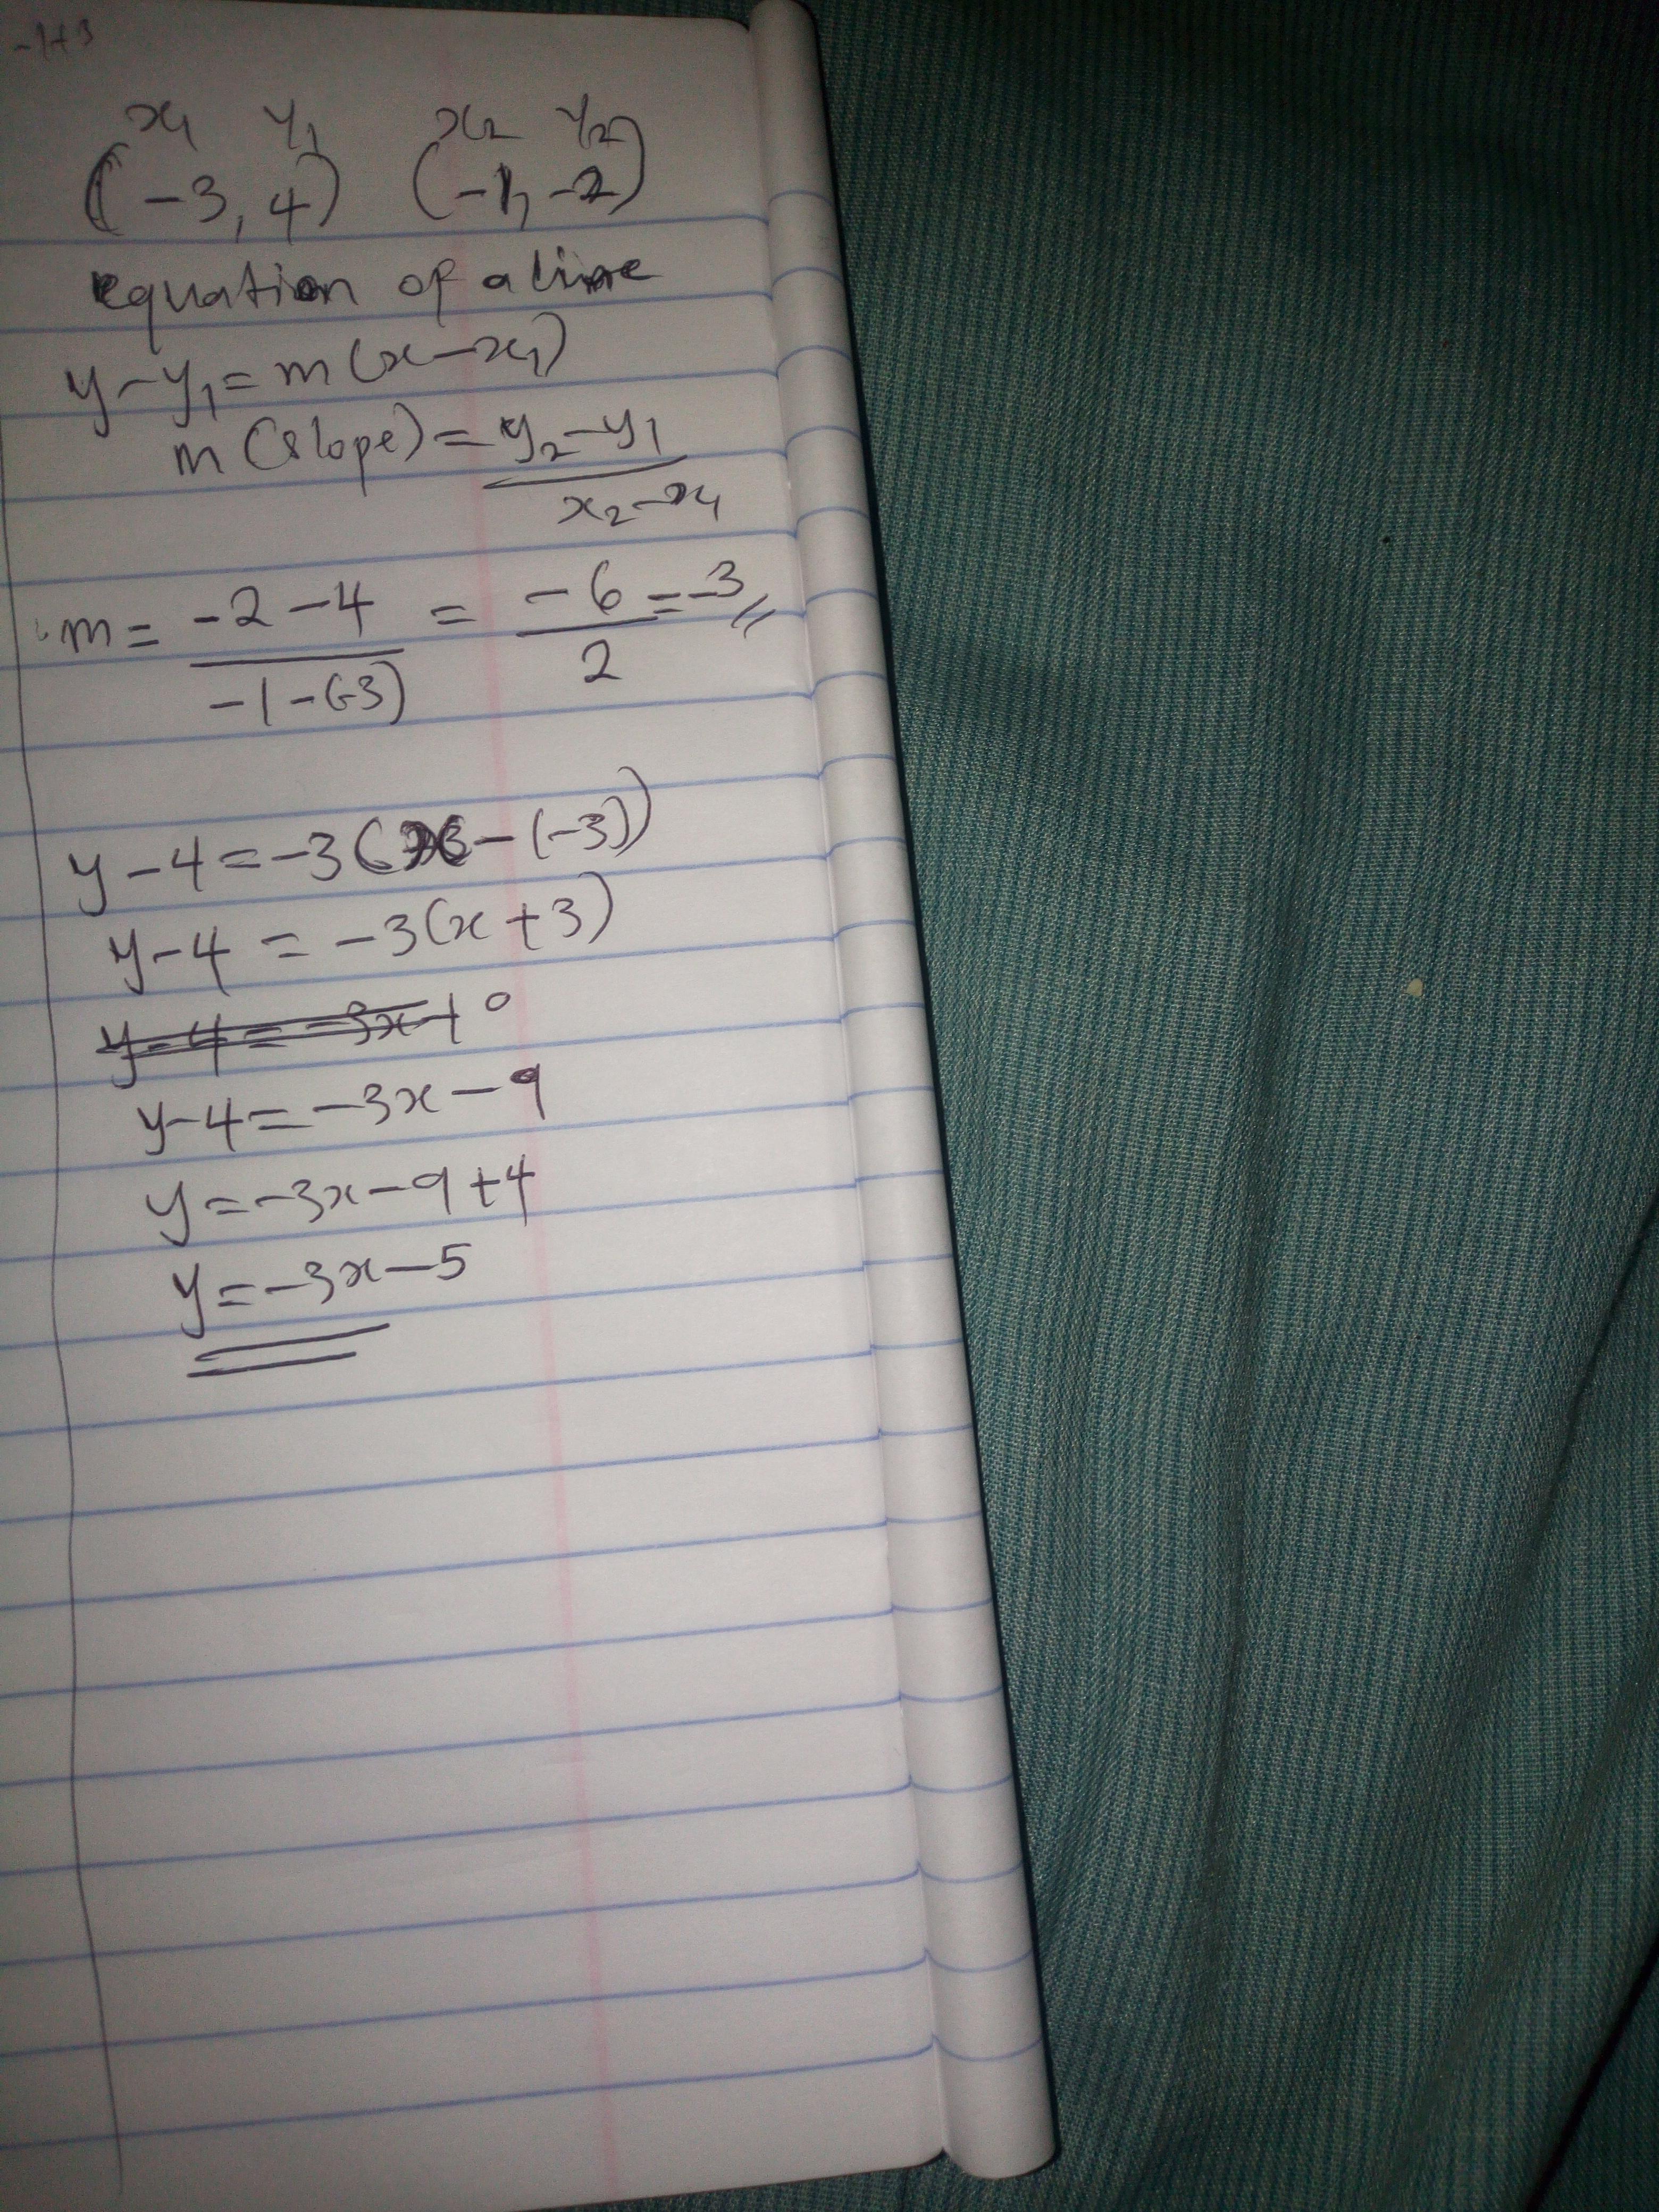 -1+3
x1 y1 x2 y2
(-3, 4) (-1, -2)
equation of a line
y-y1=m(x-x1)
m(slope)=y2-y1
x2-x1
m= -2-4 = -6 =-3
-1-(-3) 2
y-4=-3(x-(-3))
y-4=-3(x+3)
y-4=-3x+0
y-4=-3x-9
y=-3x-9+4
y=-3x-5